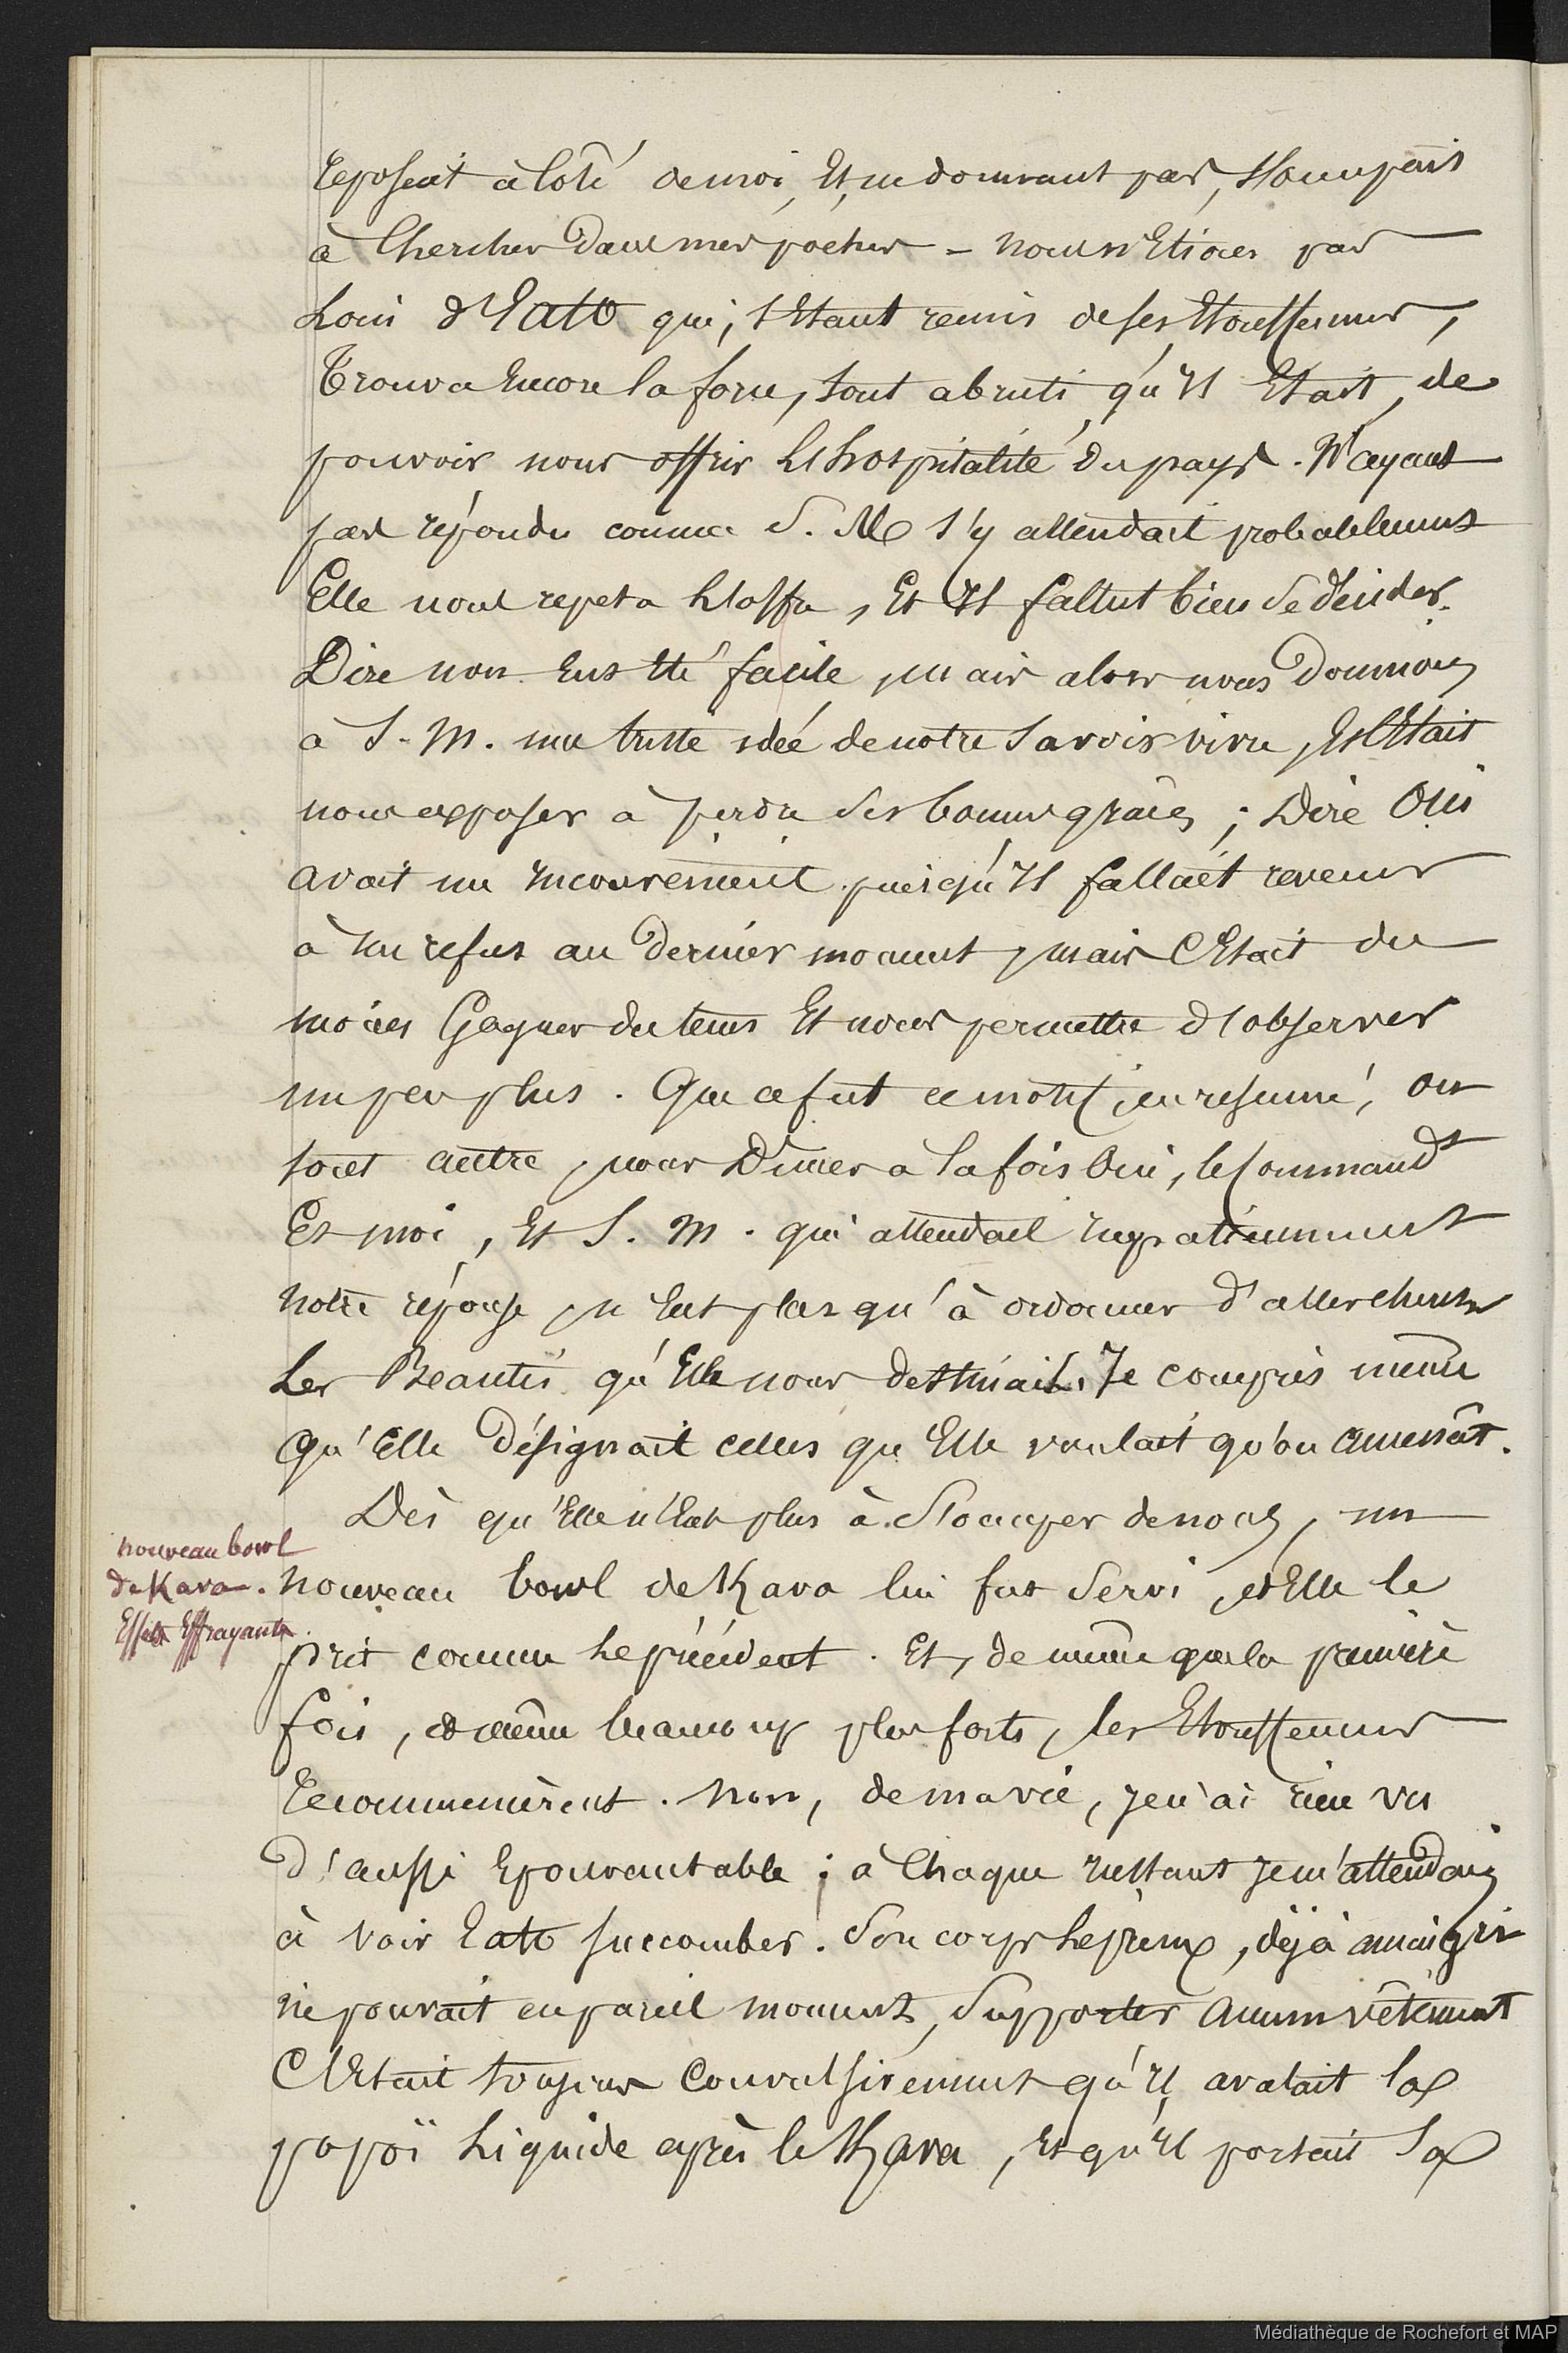 reposait à côté de moi, Et, ne dormant pas, s'occupait
à Chercher dans mes poches – nous n'Etions pas
Loin d'Eato qui, s'Etant remis de ses Etouffemens,
Trouva Encore la force, tout abruti qu'Il Etait, de
pouvoir nous offrir L'hospitalité du pays. N'ayant
pas répondu comme S. M. s'y attendait probablement
Elle nous repeta L'offre, Et Il fallut bien se décider.
Dire non Eut Eté facile, mais alors nous donnions
à S. M. une triste idée de notre savoir vivre, Et c'Etait
nous exposer à perdre ses bonnes grâces ; Dire Oui
avait un Inconvénient puisqu'Il fallait revenir
à un refus au dernier moment, mais c'Etait du
moins Gagner du tems Et nous permettre d'observer
un peu plus. Que ce fut ce motif, en résumé, ou
tout autre, nous Dîmes à la fois Oui, le Command.t
Et moi, Et S. M. qui attendait Impatiemment
notre réponse, n'Eut plus qu'à ordonner d'aller chercher
Les Beautés qu'Elle nous destinait. Je compris même
qu'Elle désignait celles qu'Elle voulait qu'on amenât.
Dès qu'Elle n'Eut plus à s'occuper de nous, un
nouveau bowl
de Kava.
Effets Effrayants.
nouveau bowl de Kava lui fut servi, et Elle le
prit comme le précédent. Et, de même que la première
fois, et même beaucoup plus forts, les Etouffemens
recommencèrent. Non, de ma vie, je n'ai rien vu
d'aussi Epouvantable ; à Chaque Instant je m'attendais
à voir Eato succomber. Son corps lépreux, déjà amaigri
ne pouvait en pareil moment, supporter aucun vêtement
C'Etait toujours Convulsivement qu'Il avalait la
popoï Liquide après le Kava, Et qu'Il portait sa
Médiathèque de Rochefort et MAP